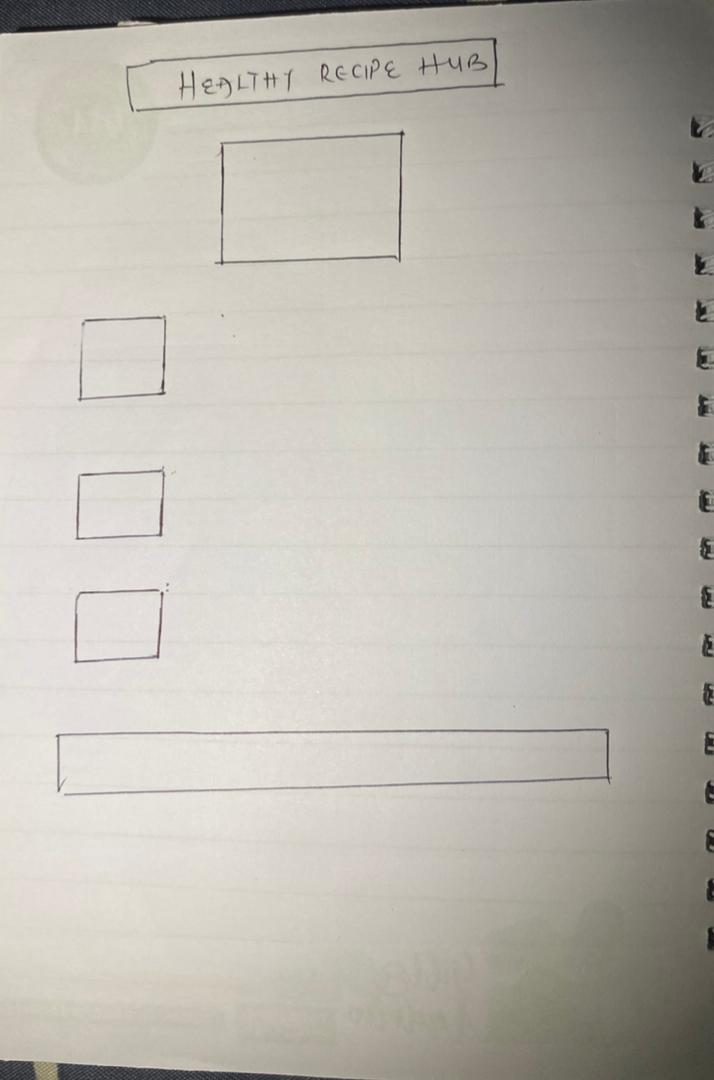 HEALTHY RECIPE HUB